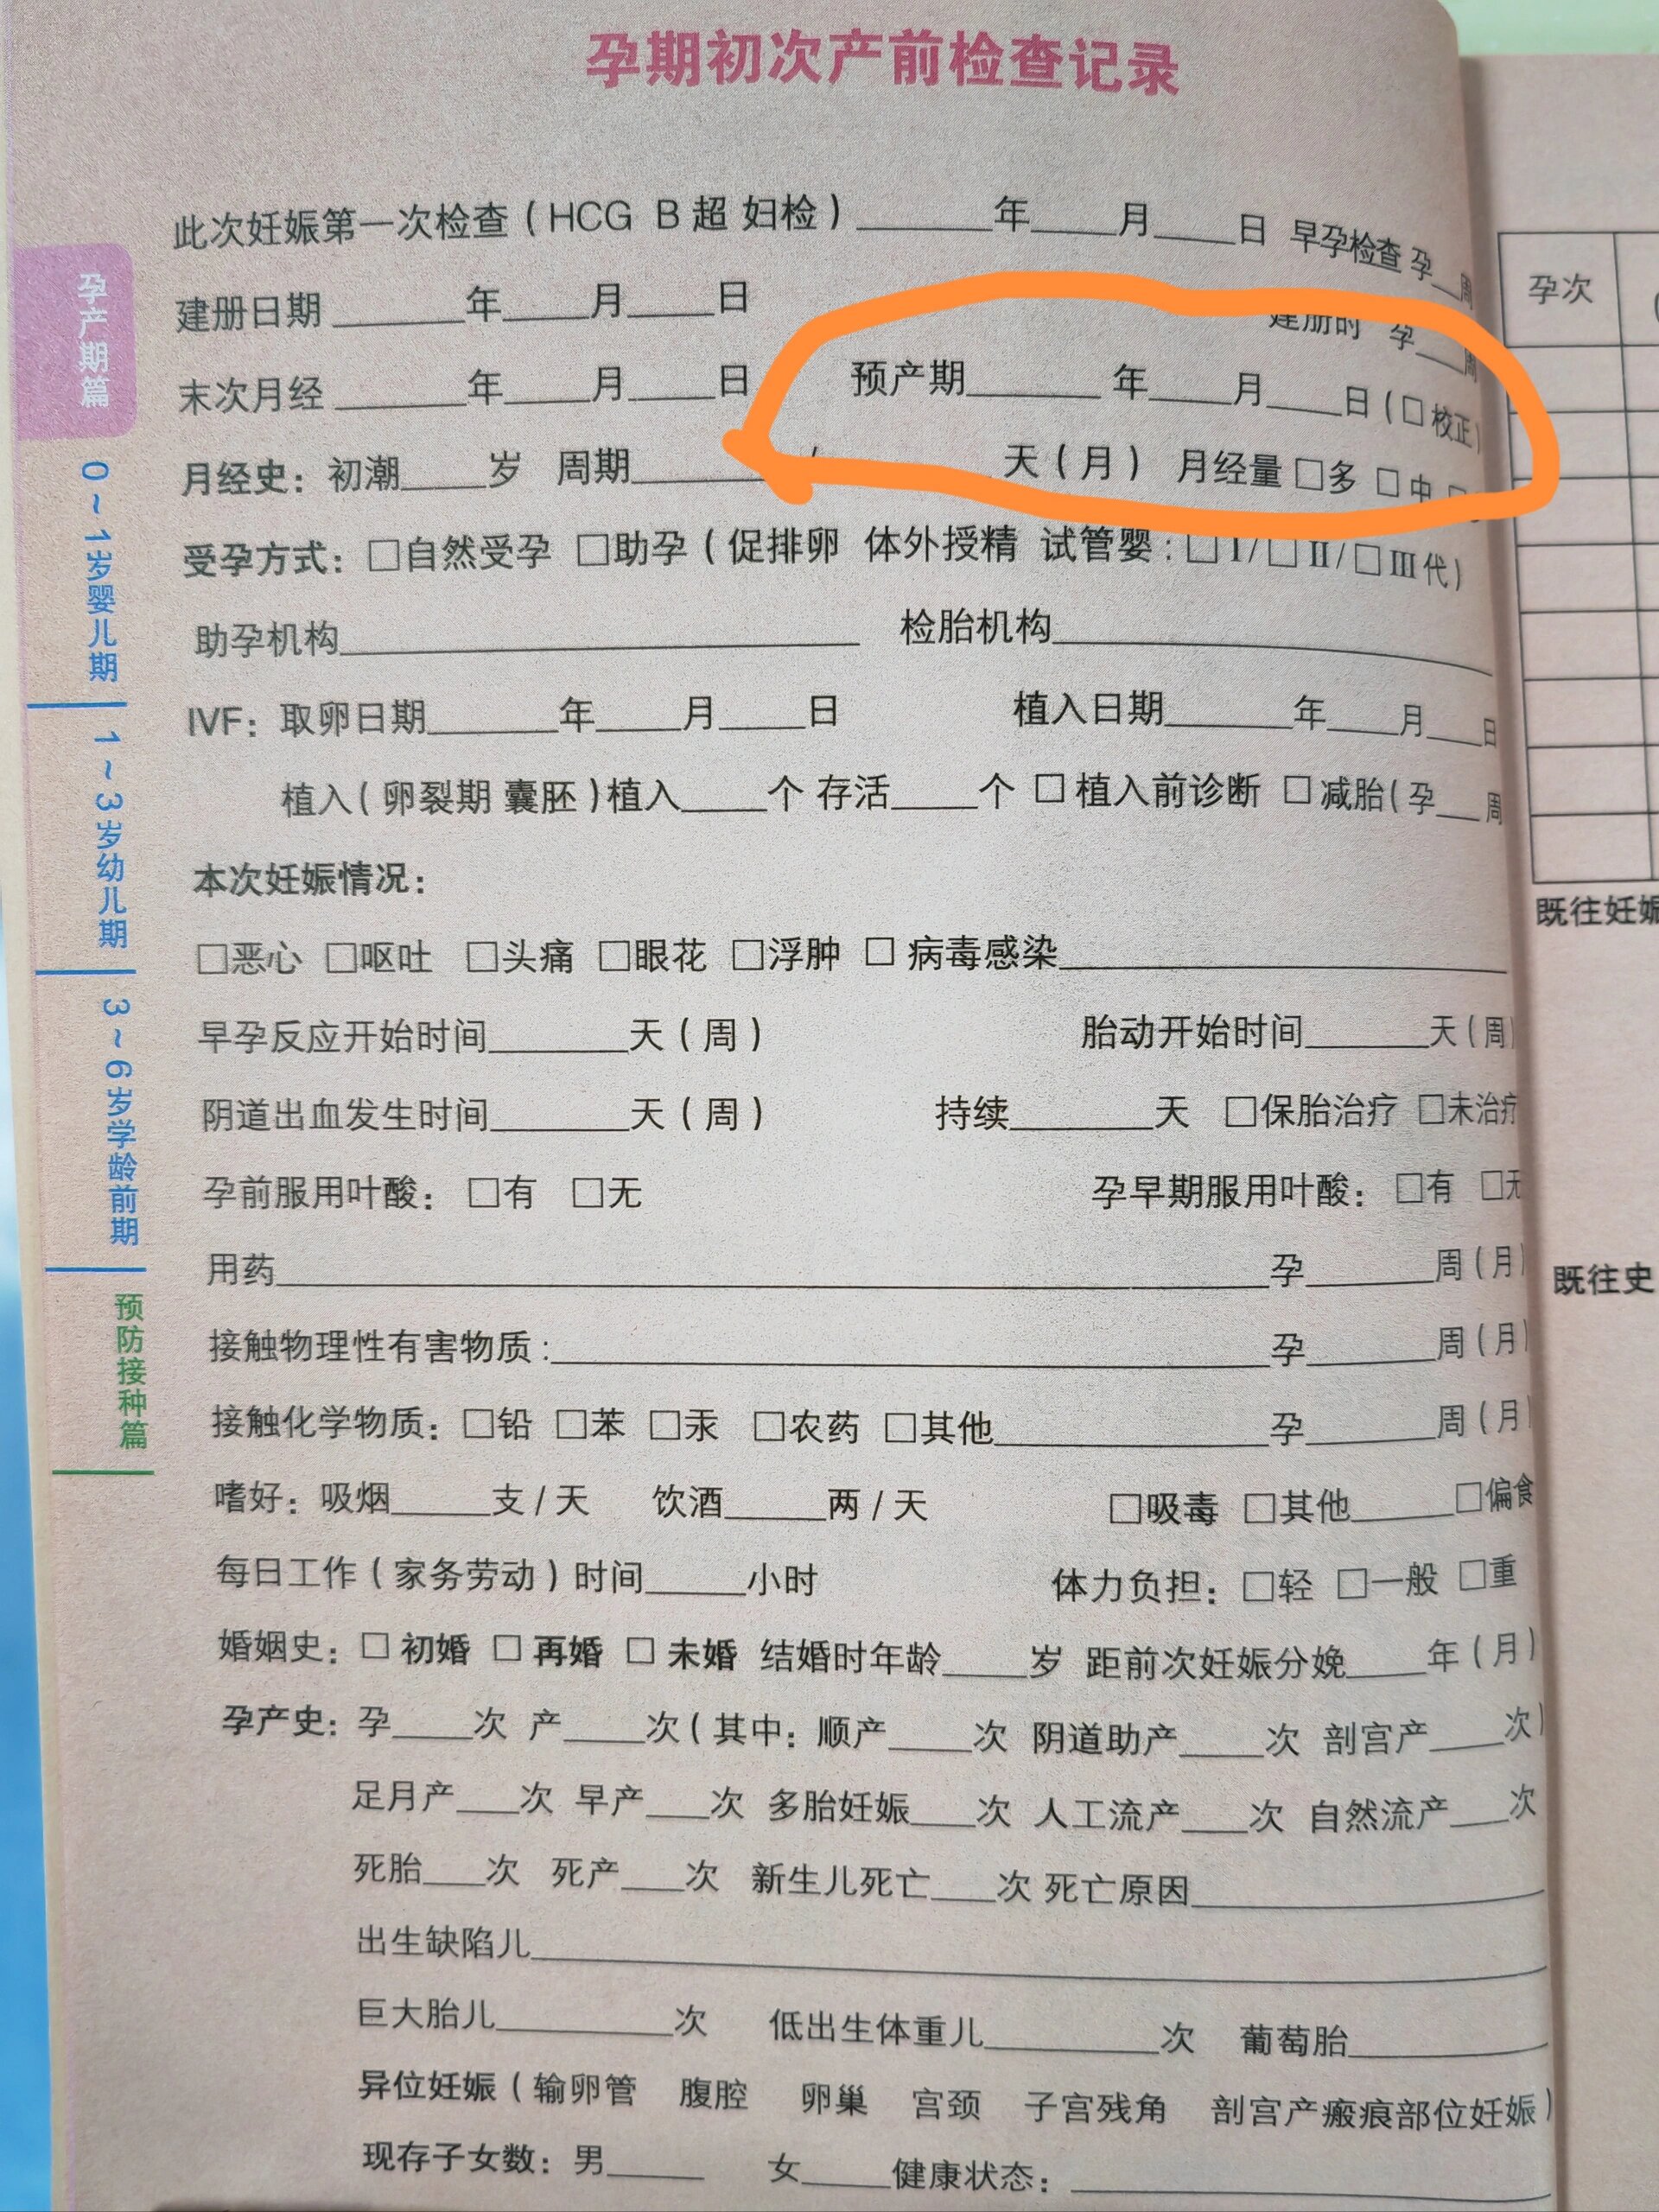 孕期初次产前检查记录
此次妊娠第一次检查（HCG B超 妇检）______年____月____日 早孕检查 孕__周
建册日期______年____月____日 建册时 孕___周
末次月经______年____月____日 预产期______年____月____日（□校正）
月经史：初潮____岁 周期______/______天（月） 月经量 □多 □中 □
受孕方式：□自然受孕 □助孕（促排卵 体外授精 试管婴：□I/□II/□III代）
助孕机构______ 检胎机构______
IVF：取卵日期______年____月____日 植入日期______年____月____日
植入（卵裂期 囊胚）植入____个 存活____个 □植入前诊断 □减胎（孕__周
本次妊娠情况：
□恶心 □呕吐 □头痛 □眼花 □浮肿 □病毒感染______
早孕反应开始时间______天（周） 胎动开始时间______天（周）
阴道出血发生时间______天（周） 持续______天 □保胎治疗 □未治疗
孕前服用叶酸：□有 □无 孕早期服用叶酸：□有 □无
用药______孕______周（月）
接触物理性有害物质：______孕______周（月）
接触化学物质：□铅 □苯 □汞 □农药 □其他______孕______周（月）
嗜好：吸烟____支/天 饮酒____两/天 □吸毒 □其他____ □偏食
每日工作（家务劳动）时间____小时 体力负担：□轻 □一般 □重
婚姻史：□初婚 □再婚 □未婚 结婚时年龄____岁 距前次妊娠分娩____年（月）
孕产史：孕____次 产____次（其中：顺产____次 阴道助产____次 剖宫产____次）
足月产___次 早产___次 多胎妊娠___次 人工流产___次 自然流产___次
死胎___次 死产___次 新生儿死亡___次 死亡原因______
出生缺陷儿______
巨大胎儿______次 低出生体重儿______次 葡萄胎______
异位妊娠（输卵管 腹腔 卵巢 宫颈 子宫残角 剖宫产瘢痕部位妊娠）
现存子女数：男____ 女____健康状态：______
孕产期篇
0～1岁婴儿期
1～3岁幼儿期
3～6岁学龄前期
预防接种篇
孕次
既往妊娠
既往史